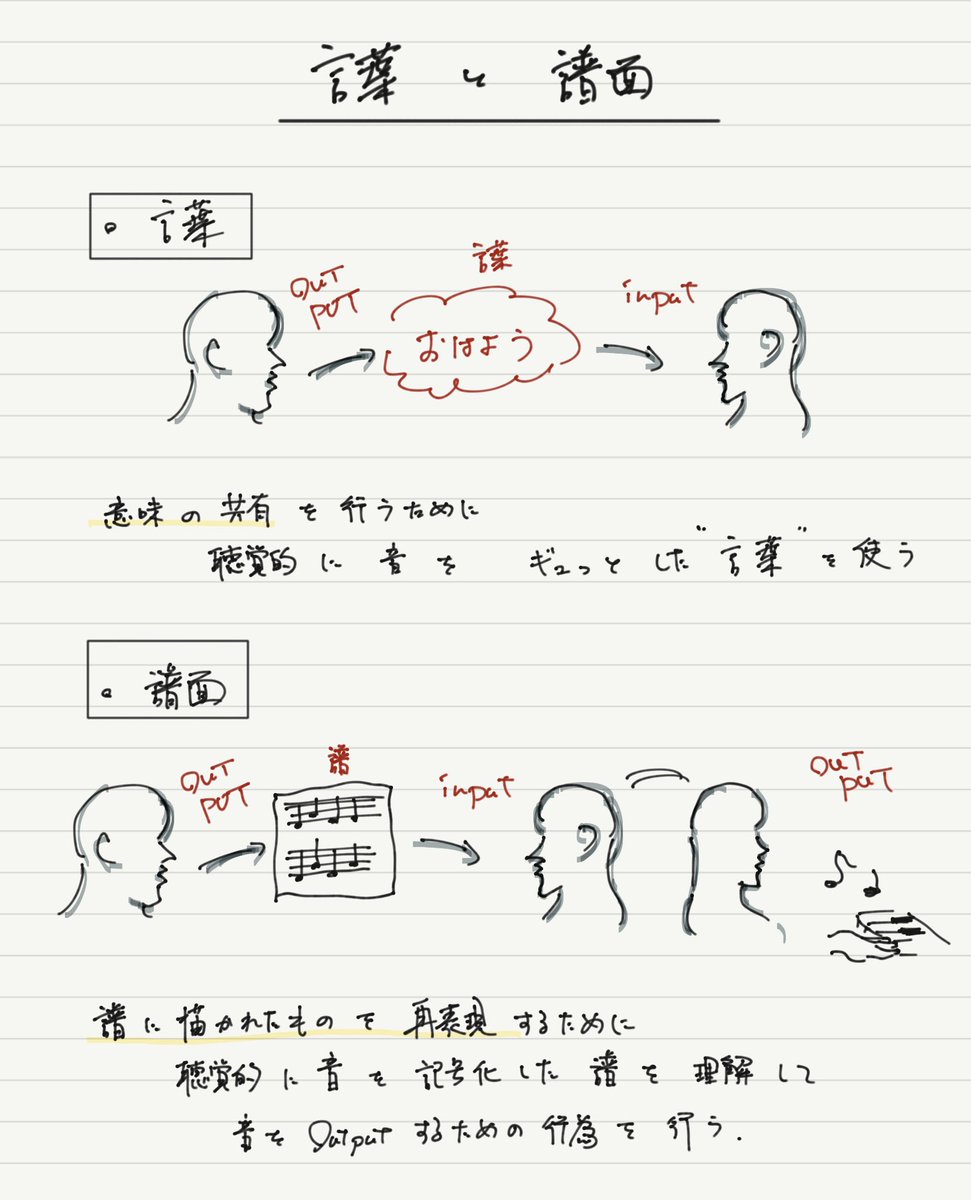 言葉 と 譜面
• 言葉
OUT
PUT
言葉
おはよう
input
意味の共有を行うために
聴覚的に音を ギュっとした"言葉"を使う
• 譜面
OUT
PUT
譜
input
OUT
PUT
譜に描かれたものを再表現するために
聴覚的に音を記号化した譜を理解して
音をOutputするための行為を行う.